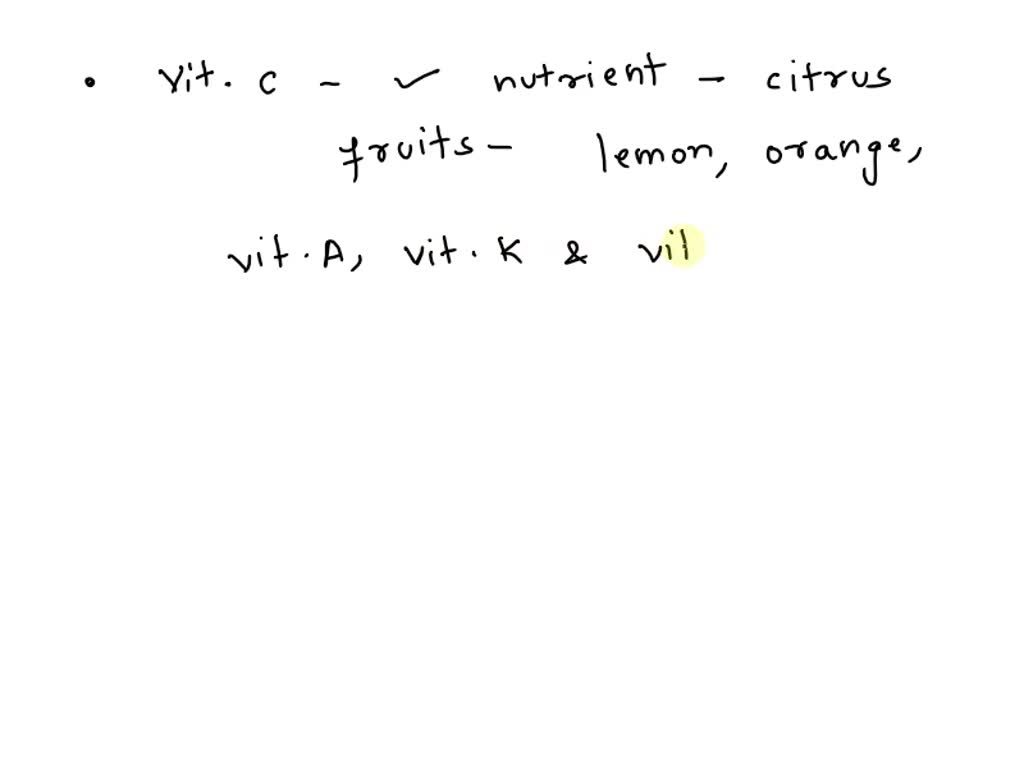 • Vit. C - ✓ nutrient - citrus
fruits - lemon, orange,
vit. A, vit. K & vit